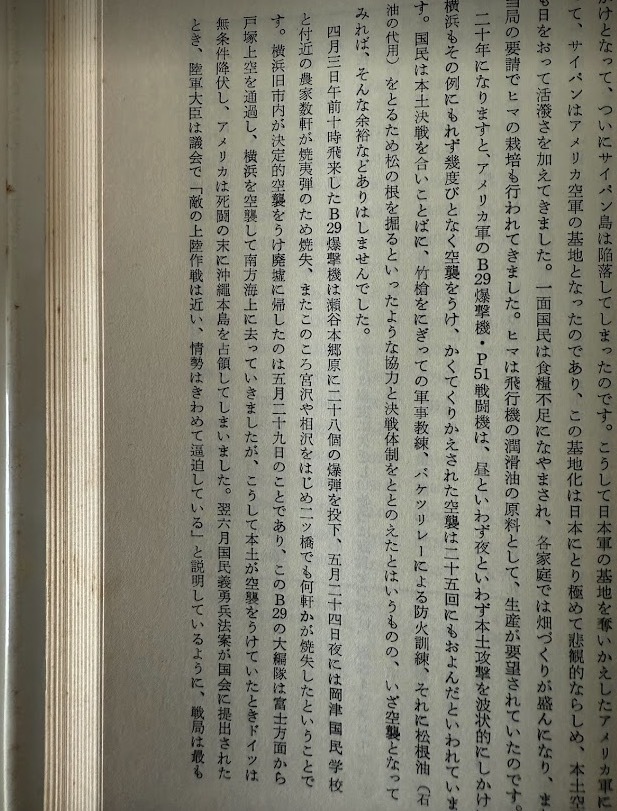 かけとなって、ついにサイパン島は陥落してしまったのです。こうして日本軍の基地を奪いかえしたアメリカ軍に
って、サイパンはアメリカ空軍の基地となったのであり、この基地化は日本にとり極めて悲観的ならしめ、本土空
も日をおって活潑さを加えてきました。一面国民は食糧不足になやまされ、各家庭では畑づくりが盛んになり、ま
当局の要請でヒマの栽培も行われてきました。ヒマは飛行機の潤滑油の原料として、生産が要望されていたのです。
二十年になりますと、アメリカ軍のB29爆撃機・P51戦闘機は、昼といわず夜といわず本土攻撃を波状的にしかけ
横浜もその例にもれず幾度びとなく空襲をうけ、かくてくりかえされた空襲は二十五回にもおよんだといわれていま
す。国民は本土決戦を合いことばに、竹槍をにぎっての軍事教練、バケツリレーによる防火訓練、それに松根油（石
油の代用）をとるため松の根を掘るといったような協力と決戦体制をととのえたとはいうものの、いざ空襲となって
みれば、そんな余裕などありはしませんでした。
四月三日午前十時飛来したB29爆撃機は瀬谷本郷原に二十八個の爆弾を投下、五月二十四日夜には岡津国民学校
と付近の農家数軒が焼夷弾のため焼失、またこのころ宮沢や相沢をはじめ二ッ橋でも何軒かが焼失したということで
す。横浜旧市内が決定的空襲をうけ廃墟に帰したのは五月二十九日のことであり、このB29の大編隊は富士方面から
戸塚上空を通過し、横浜を空襲して南方海上に去っていきましたが、こうして本土が空襲をうけていたときドイツは
無条件降伏し、アメリカは死闘の末に沖縄本島を占領してしまいました。翌六月国民義勇兵法案が国会に提出された
とき、陸軍大臣は議会で「敵の上陸作戦は近い、情勢はきわめて逼迫している」と説明しているように、戦局は最も